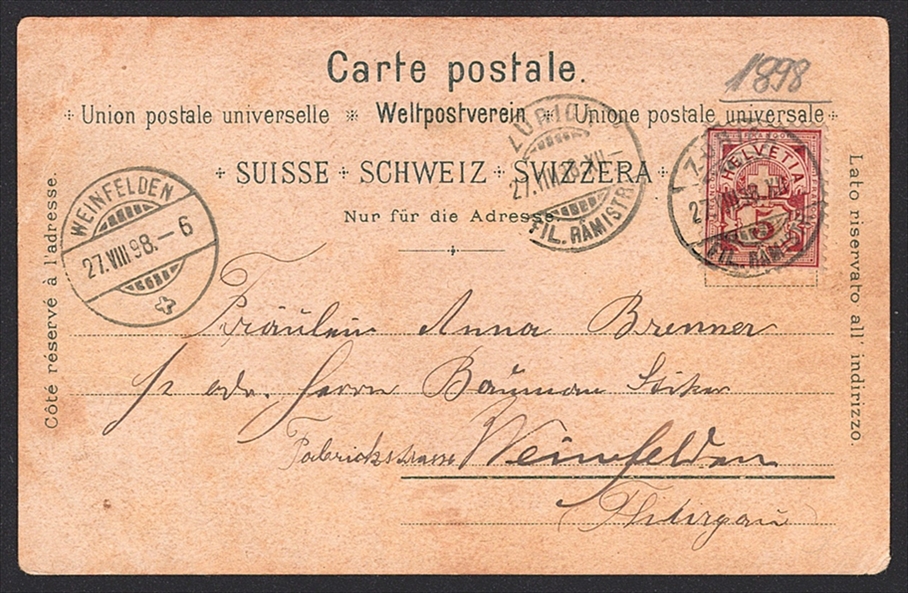 Carte postale.
1898
Union postale universelle * Weltpostverein * Unione postale universale
SUISSE SCHWEIZ SVIZZERA
Nur für die Adresse.
Côté réservé à l'adresse.
Lato riservato all' indirizzo.
WEINFELDEN
27.VIII 98.-6
ZÜRICH
27.VIII.98.XII-
FIL. RÄMISTR.
HELVETIA
5
27.VIII.98.XII
FIL. RÄM
Fräulein Anna Brenner
adr. Herrn Bauman
Fabrikstrasse Weinfelden
Thurgau